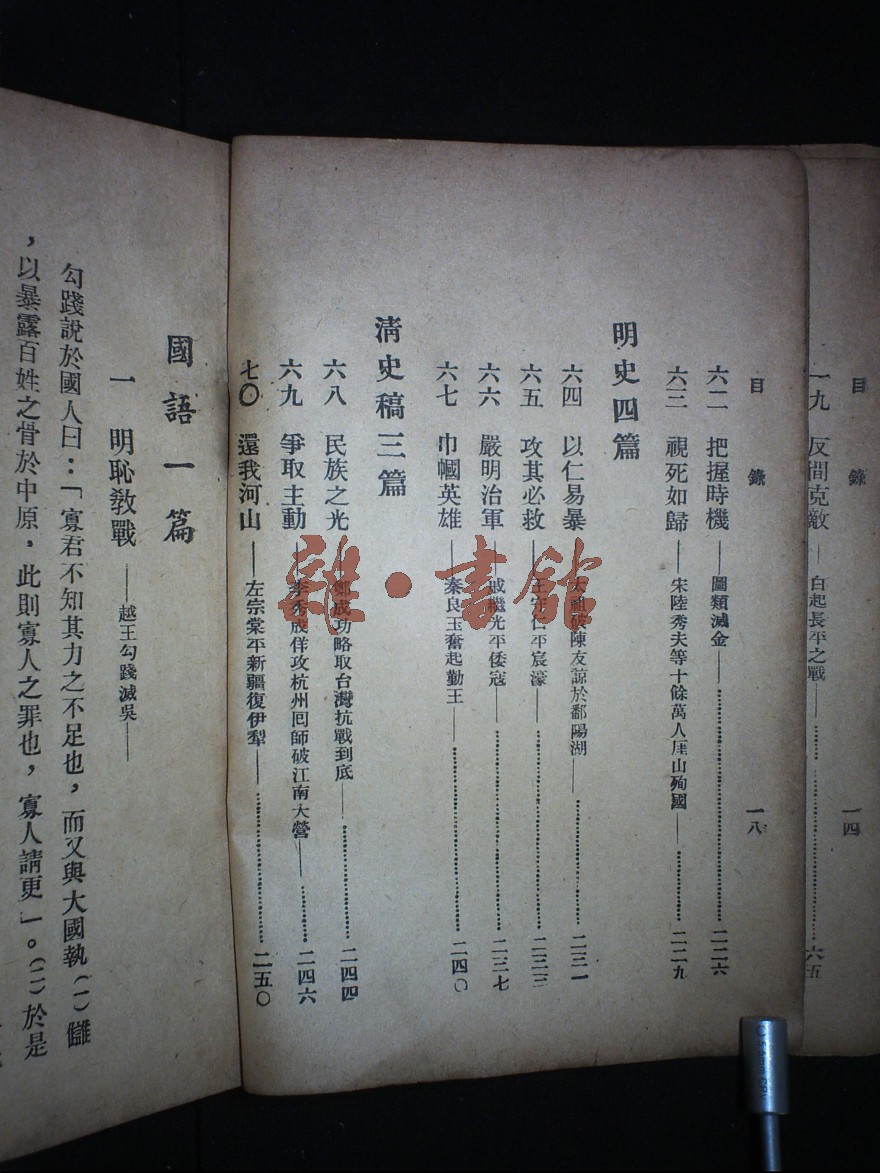 目 錄 一四
一九 反間克敵——白起長平之戰——……六五
目 錄 一八
六二 把握時機——圖類滅金——……二二六
六三 視死如歸——宋陸秀夫等十餘萬人厓山殉國——……二二九
明史四篇
六四 以仁易暴——太祖破陳友諒於鄱陽湖——……二三一
六五 攻其必救——王守仁平宸濠——……二三三
六六 嚴明治軍——戚繼光平倭寇——……二三七
六七 巾幗英雄——秦良玉奮起勤王——……二四〇
清史稿三篇
六八 民族之光——鄭成功略取台灣抗戰到底——……二四四
六九 爭取主動——李秀成佯攻杭州囘師破江南大營——……二四六
七〇 還我河山——左宗棠平新疆復伊犁——……二五〇
國語一篇
一 明恥敎戰——越王勾踐滅吳——
勾踐說於國人曰：「寡君不知其力之不足也，而又與大國執(一)讎
，以暴露百姓之骨於中原，此則寡人之罪也，寡人請更」。(二)於是
雜·書館